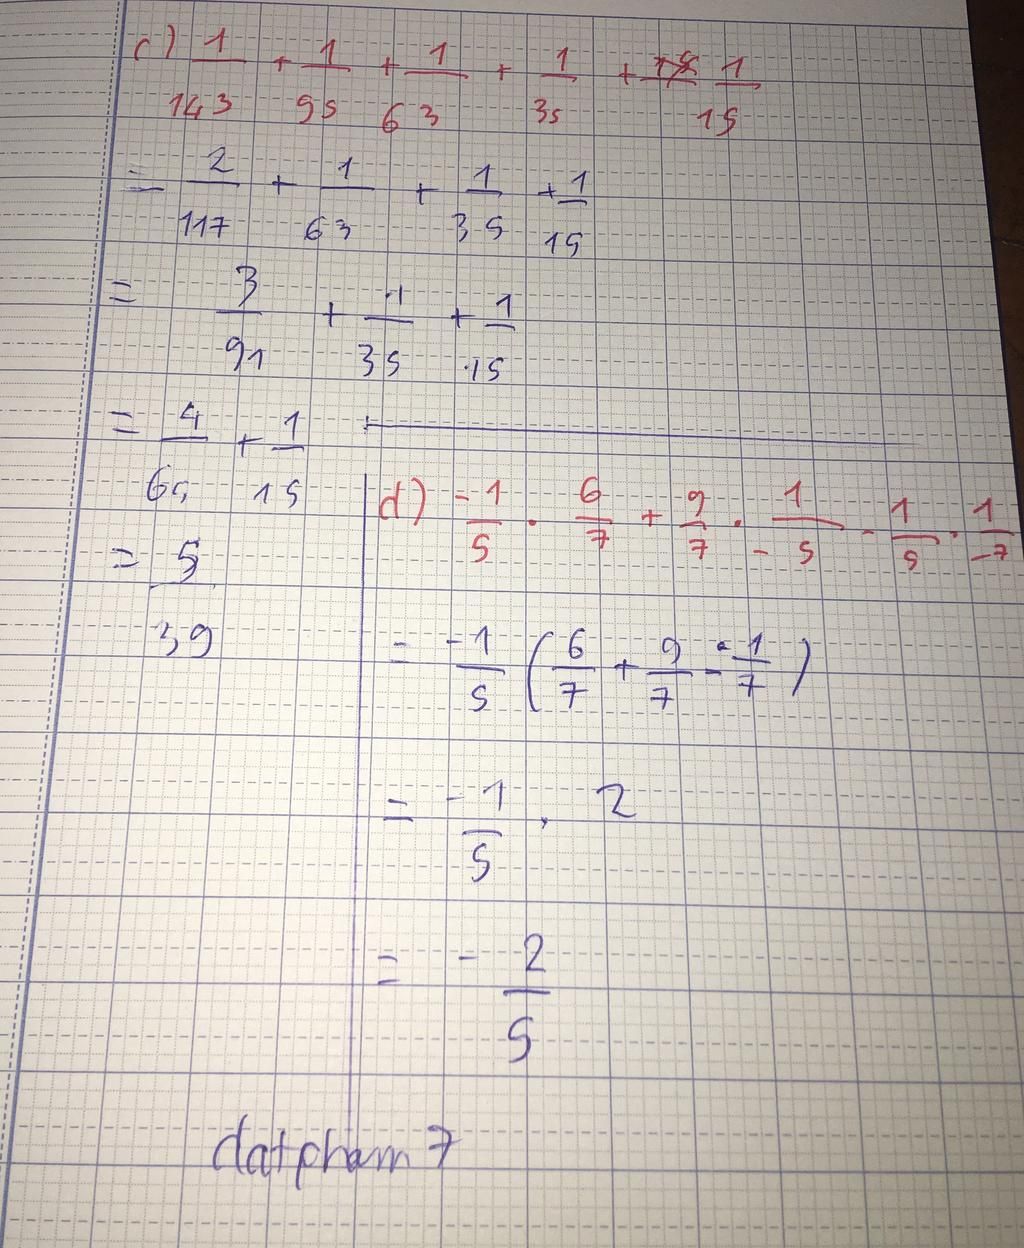 c) 1/143 + 1/95 + 1/63 + 1/35 + 1/15
= 2/117 + 1/63 + 1/35 + 1/15
= 3/91 + 1/35 + 1/15
= 4/65 + 1/15
= 5/39
d) -1/5 . 6/7 + 9/7 . 1/-5 - 1/5 . 1/-7
= -1/5 (6/7 + 9/7 - 1/7)
= -1/5 . 2
= - 2/5
datpham7